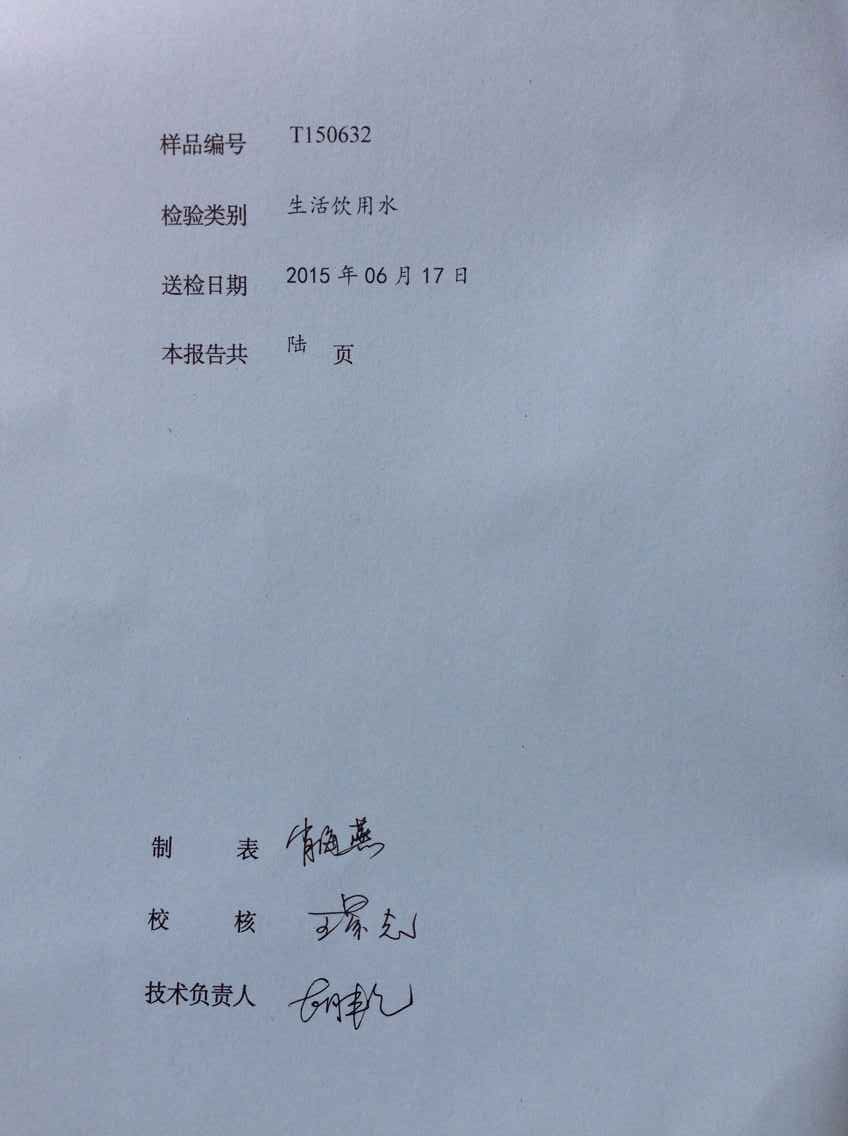 样品编号 T150632
检验类别 生活饮用水
送检日期 2015 年 06 月 17 日
本报告共 陆 页
制 表 肖海燕
校 核
技术负责人